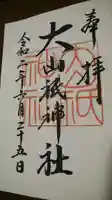 奉拝
大山祇神社
令和二年十月二十五日